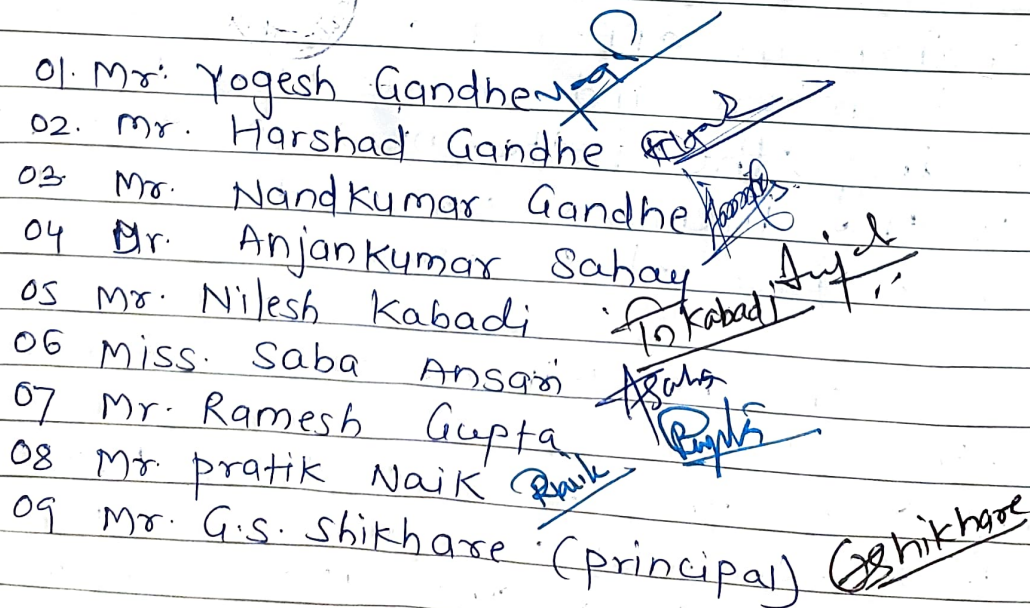 01. Mr. Yogesh Gandhe
02. Mr. Harshad Gandhe
03 Mr. Nandkumar Gandhe
04 Mr. Anjankumar Sahay
05 Mr. Nilesh Kabadi Kabadi
06 Miss. Saba Ansari
07 Mr. Ramesh Gupta
08 Mr. pratik Naik
09 Mr. G.S. Shikhare (principal) Gshikhare